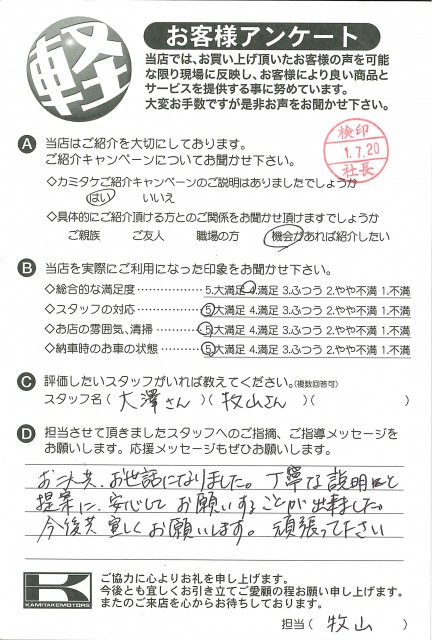 軽
お客様アンケート
当店では、お買い上げ頂いたお客様の声を可能
な限り現場に反映し、お客様により良い商品と
サービスを提供する事に努めています。
大変お手数ですが是非お声をお聞かせ下さい。
検印
1.7.20
社長
A 当店はご紹介を大切にしております。
ご紹介キャンペーンについてお聞かせ下さい。
◇カミタケご紹介キャンペーンのご説明はありましたでしょうか
はい いいえ
◇具体的にご紹介頂ける方とのご関係をお聞かせ頂けますでしょうか
ご親族 ご友人 職場の方 機会があれば紹介したい
B 当店を実際にご利用になった印象をお聞かせ下さい。
◇総合的な満足度 …………… 5.大満足 4.満足 3.ふつう 2.やや不満 1.不満
◇スタッフの対応 …………… 5.大満足 4.満足 3.ふつう 2.やや不満 1.不満
◇お店の雰囲気、清掃 ……… 5.大満足 4.満足 3.ふつう 2.やや不満 1.不満
◇納車時のお車の状態 ……… 5.大満足 4.満足 3.ふつう 2.やや不満 1.不満
C 評価したいスタッフがいれば教えてください。(複数回答可)
スタッフ名 ( 大澤さん )( 牧山さん )( )
D 担当させて頂きましたスタッフへのご指摘、ご指導メッセージを
お願いします。応援メッセージもぜひお願いします。
お二人共、お世話になりました。丁寧な説明と
提案に、安心してお願いすることが出来ました。
今後共宜しくお願いします。頑張って下さい
K
KAMITAKEMOTORS
ご協力に心よりお礼を申し上げます。
今後とも宜しくお引き立てご愛顧の程お願い申し上げます。
またのご来店を心からお待ちしております。
担当 ( 牧山 )